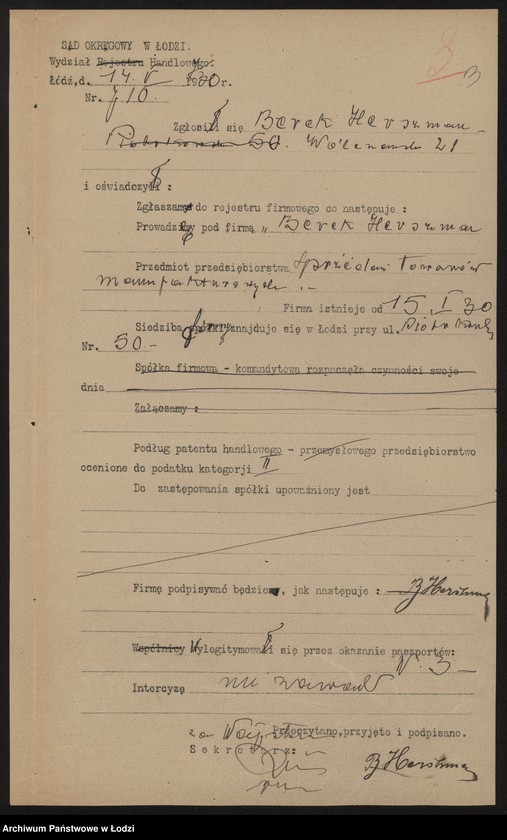 SĄD OKRĘGOWY W ŁODZI.
Wydział Rejestru Handlowego.
Łódź,d. 14. V 1930 r.
3
3
Nr. 710.
Zgłosił się Berek Herszman
Piotrkowska 50. Wólczańska 21
i oświadczył :
Zgłaszam do rejestru firmowego co następuje :
Prowadzę pod firmą „ Berek Herszman
Przedmiot przedsiębiorstwa sprzedaż towarów
manufakturowych .-
Firma istnieje od 15. I 30
Siedziba spółki firmy znajduje się w Łodzi przy ul. Piotrkowsk
Nr. 50.-
Spółka firmowa - komandytowa rozpoczęła czynności swoje
dnia
Załączamy :
Podług patentu handlowego - przemysłowego przedsiębiorstwo
ocenione do podatku kategorji II
Do zastępowania spółki upoważniony jest
Firmę podpisywać będzie, jak następuje : BHerszman
Wspólnicy Wylegitymował się przez okazanie paszportów:
N. 3
Intercyzę nie zawarł
za
Przeczytano,przyjęto i podpisano.
Sekretarz:
BHerszman
Archiwum Państwowe w Łodzi